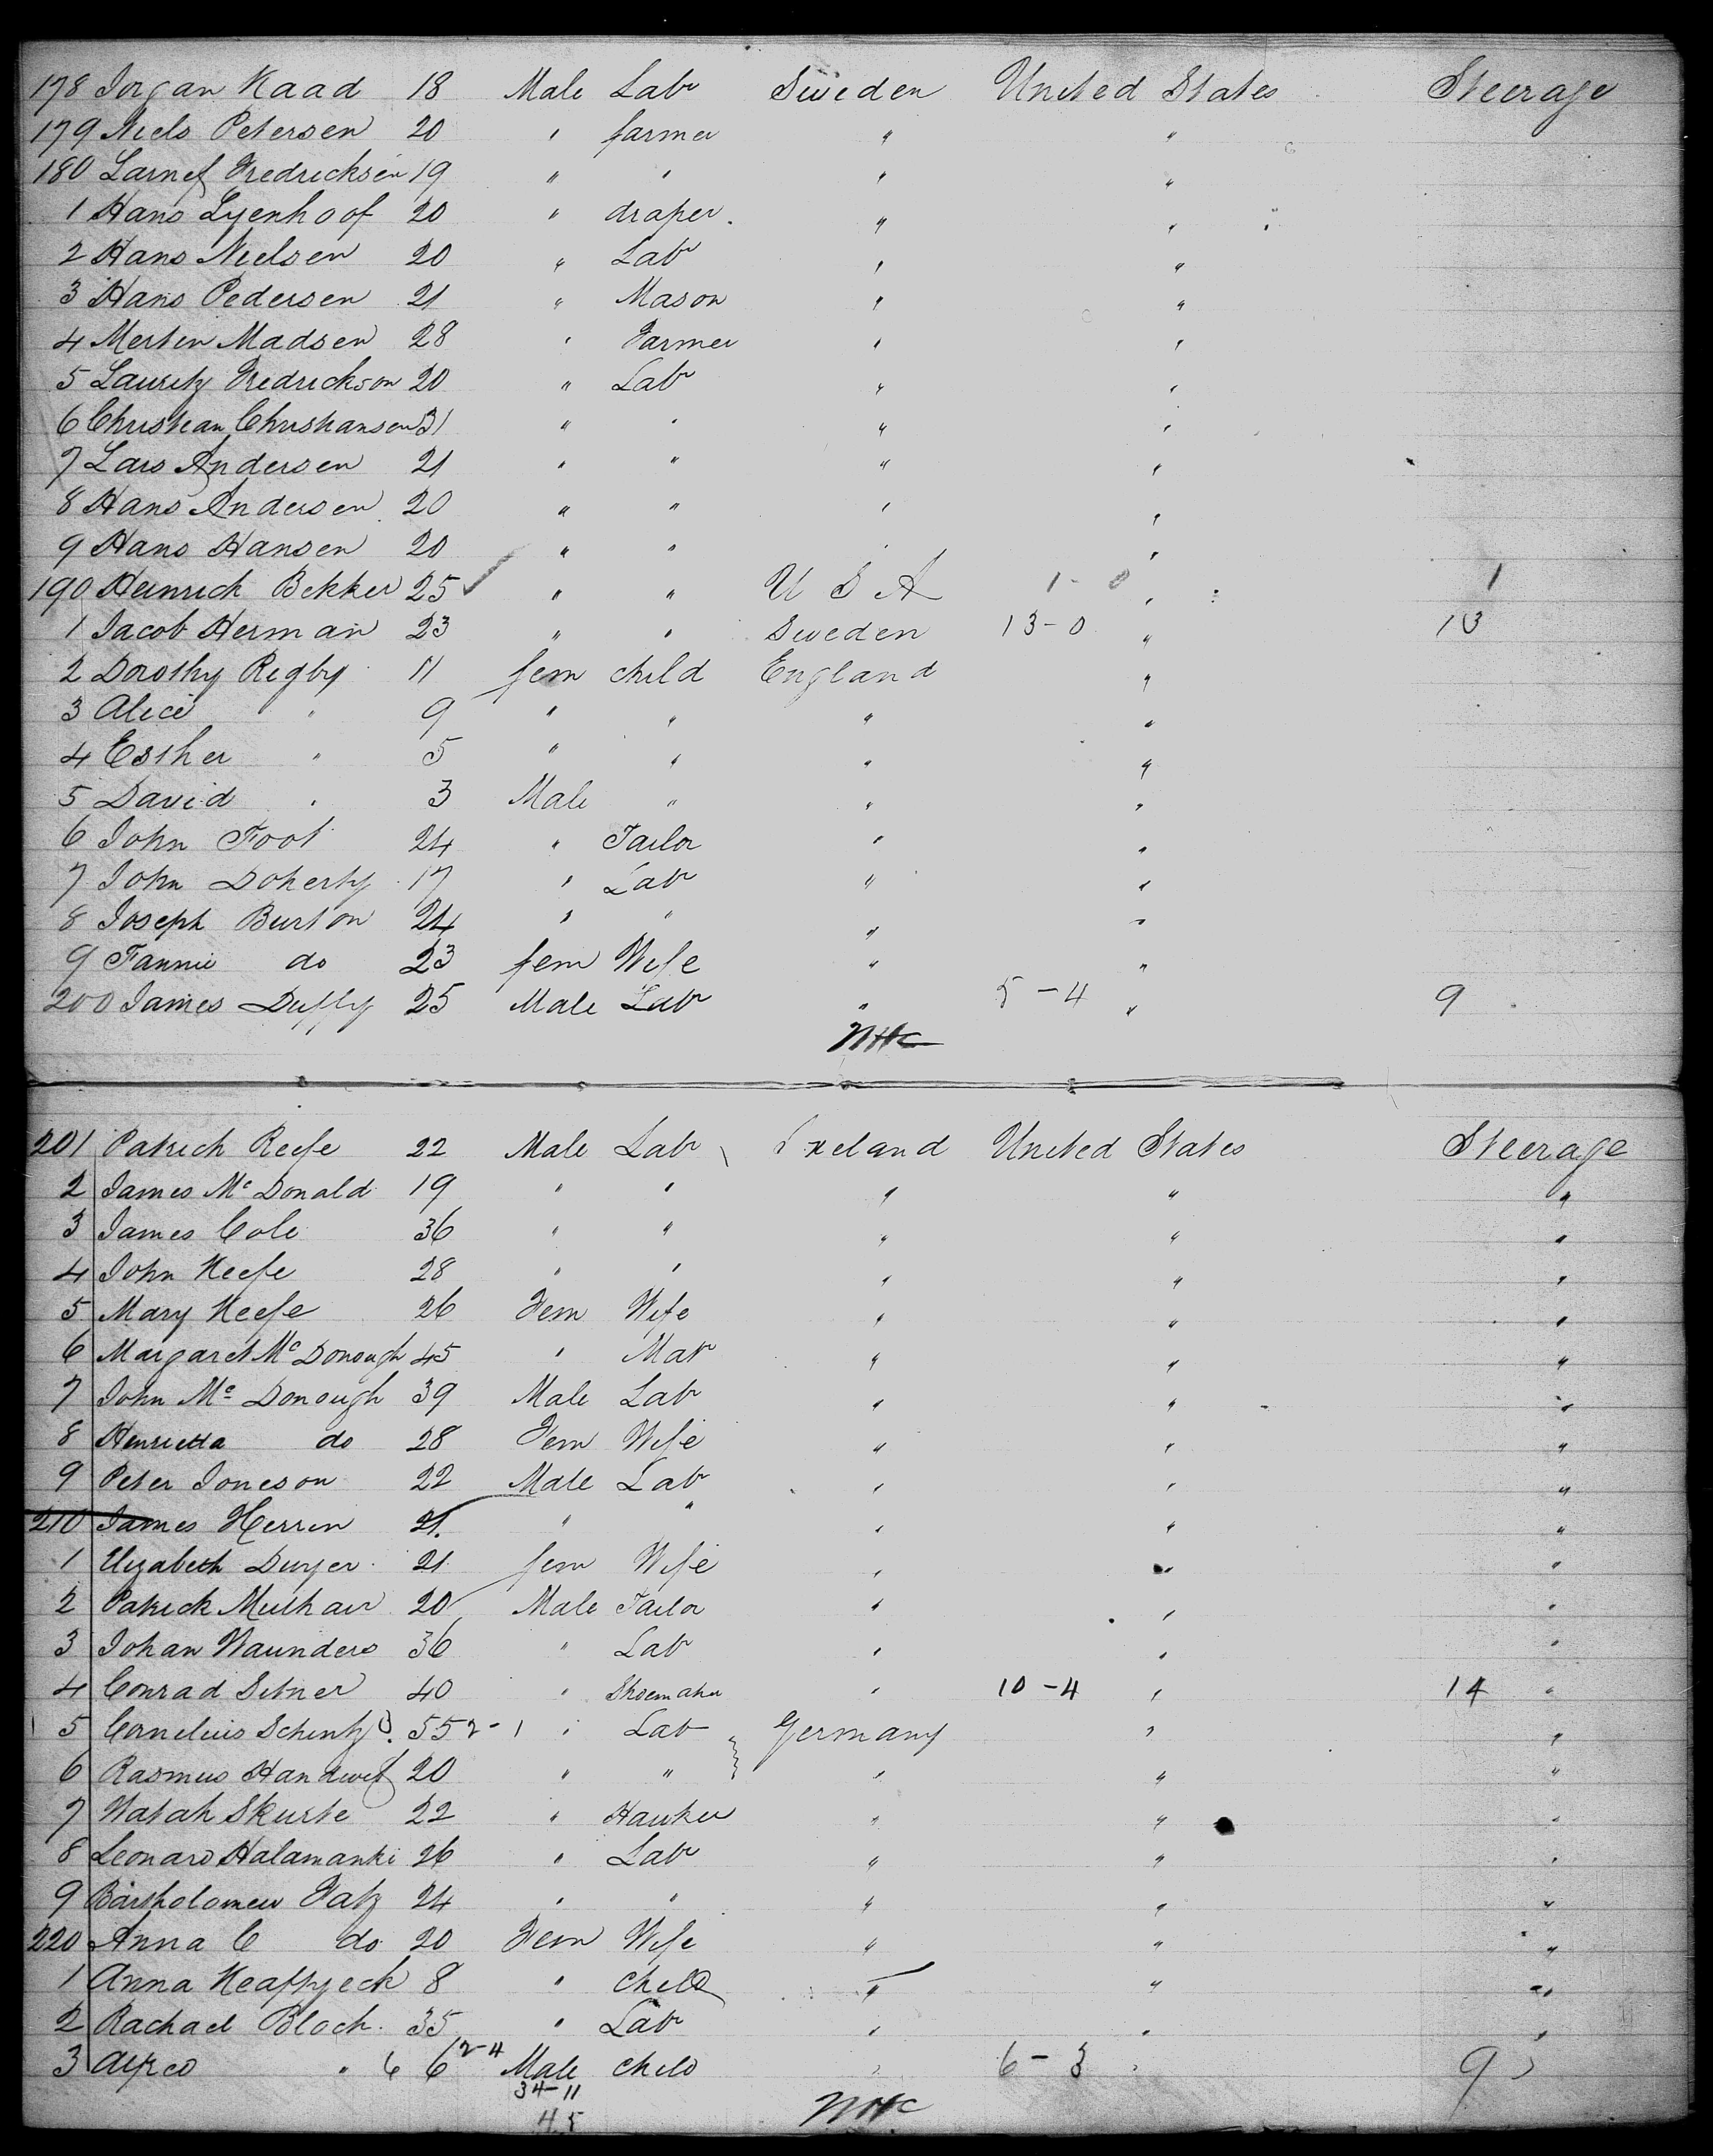 178 Jorgan Kaad 18 Male Labr Sweden United States Steerage
179 Niels Petersen 20 " farmer " "
180 Larnef Fredricksen 19 " " " "
1 Hans Lyenhoof 20 " draper " "
2 Hans Nielsen 20 " Labr " "
3 Hans Pedersen 21 " Mason " "
4 Merten Madsen 28 " Farmer " "
5 Lauritz Fredrickson 20 " Labr " "
6 Christian Christiansen 31 " " " "
7 Lars Andersen 21 " " " "
8 Hans Andersen 20 " " " "
9 Hans Hansen 20 " " " "
190 Heinrich Bekker 25 " " U S A 1-0 " 1
1 Jacob Herman 23 " " Sweden 13-0 " 13
2 Dorothy Rigby 11 fem child England "
3 Alice " 9 " " " "
4 Esther " 5 " " " "
5 David " 3 Male " " "
6 John Foot 24 " Tailor " "
7 John Doherty 17 " Labr " "
8 Joseph Burton 24 " " " "
9 Fannie do 23 fem Wife " "
200 James Duffy 25 Male Labr " 5-4 " 9
201 Patrick Reefe 22 Male Labr Ireland United States Steerage
2 James McDonald 19 " " " " "
3 James Cole 36 " " " " "
4 John Keefe 28 " " " " "
5 Mary Keefe 26 Fem Wife " " "
6 Margaret McDonough 45 " Matr " " "
7 John McDonough 39 Male Labr " " "
8 Henrietta do 28 Fem Wife " " "
9 Peter Joneson 22 Male Labr " " "
210 James Herren 21 " " " " "
1 Elizabeth Dwyer 21 fem Wife " " "
2 Patrick Mulhair 20 Male Tailor " " "
3 Johan Waunders 36 " Labr " " "
4 Conrad Setner 40 " Shoemaker " 10-4 " 14 "
5 Cornelius 55 2-1 " Lab Germany " "
6 Rasmus 20 " " " " "
7 Natah Skurte 22 " Hawker " " "
8 Leonard Halamanki 26 " Labr " " "
9 Bartholomew Fatz 24 " " " " "
220 Anna C do 20 Fem Wife " " "
1 Anna 8 " Child " " "
2 Rachael Bloch 35 " Labr " " "
3 " 6 6 2-4 Male Child " 6-3 " 9 "
34-11
45